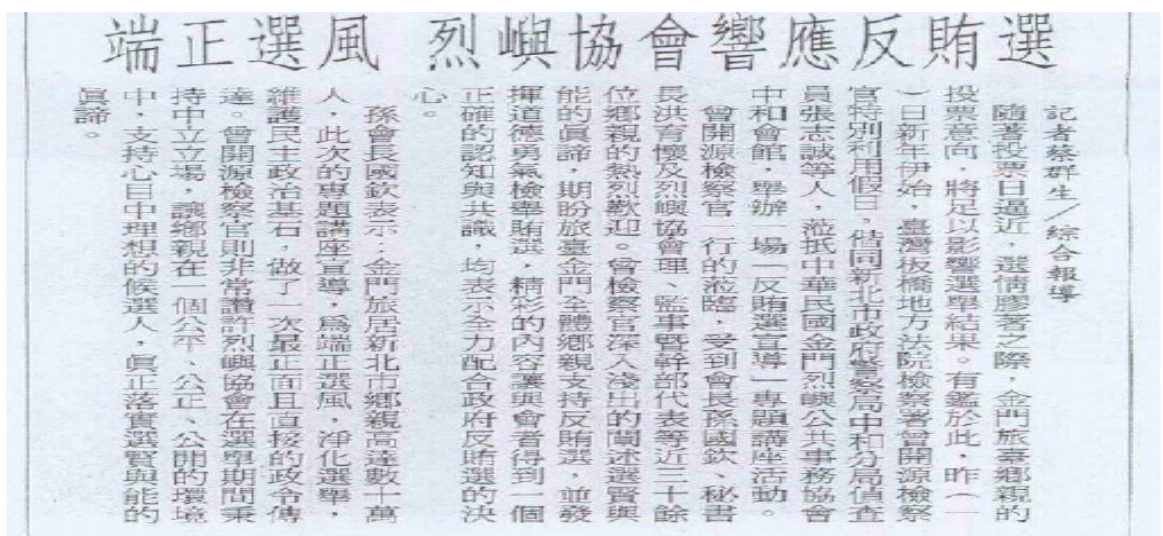 端正選風 烈嶼協會響應反賄選
記者蔡群生／綜合報導
隨著投票日逼近，選情膠著之際，金門旅臺鄉親的
投票意向，將足以影響選舉結果。有鑑於此，昨（一
）日新年伊始，臺灣板橋地方法院檢察署曾開源檢察
官特別利用假日，偕同新北市政府警察局中和分局偵查
員張志誠等人，蒞抵中華民國金門烈嶼公共事務協會
中和會館，舉辦一場「反賄選宣導」專題講座活動。
曾開源檢察官一行的蒞臨，受到會長孫國欽、秘書
長洪育懷及烈嶼協會理、監事暨幹部代表等近三十餘
位鄉親的熱烈歡迎。曾檢察官深入淺出的闡述選賢與
能的真諦，期盼旅臺金門全體鄉親支持反賄選，並發
揮道德勇氣檢舉賄選，精彩的內容讓與會者得到一個
正確的認知與共識，均表示全力配合政府反賄選的決
心。
孫會長國欽表示：金門旅居新北市鄉親高達數十萬
人，此次的專題講座宣導，為端正選風，淨化選舉，
維護民主政治基石，做了一次最正面且直接的政令傳
達。曾開源檢察官則非常讚許烈嶼協會在選舉期間秉
持中立立場，讓鄉親在一個公平、公正、公開的環境
中，支持心目中理想的候選人，真正落實選賢與能的
真諦。